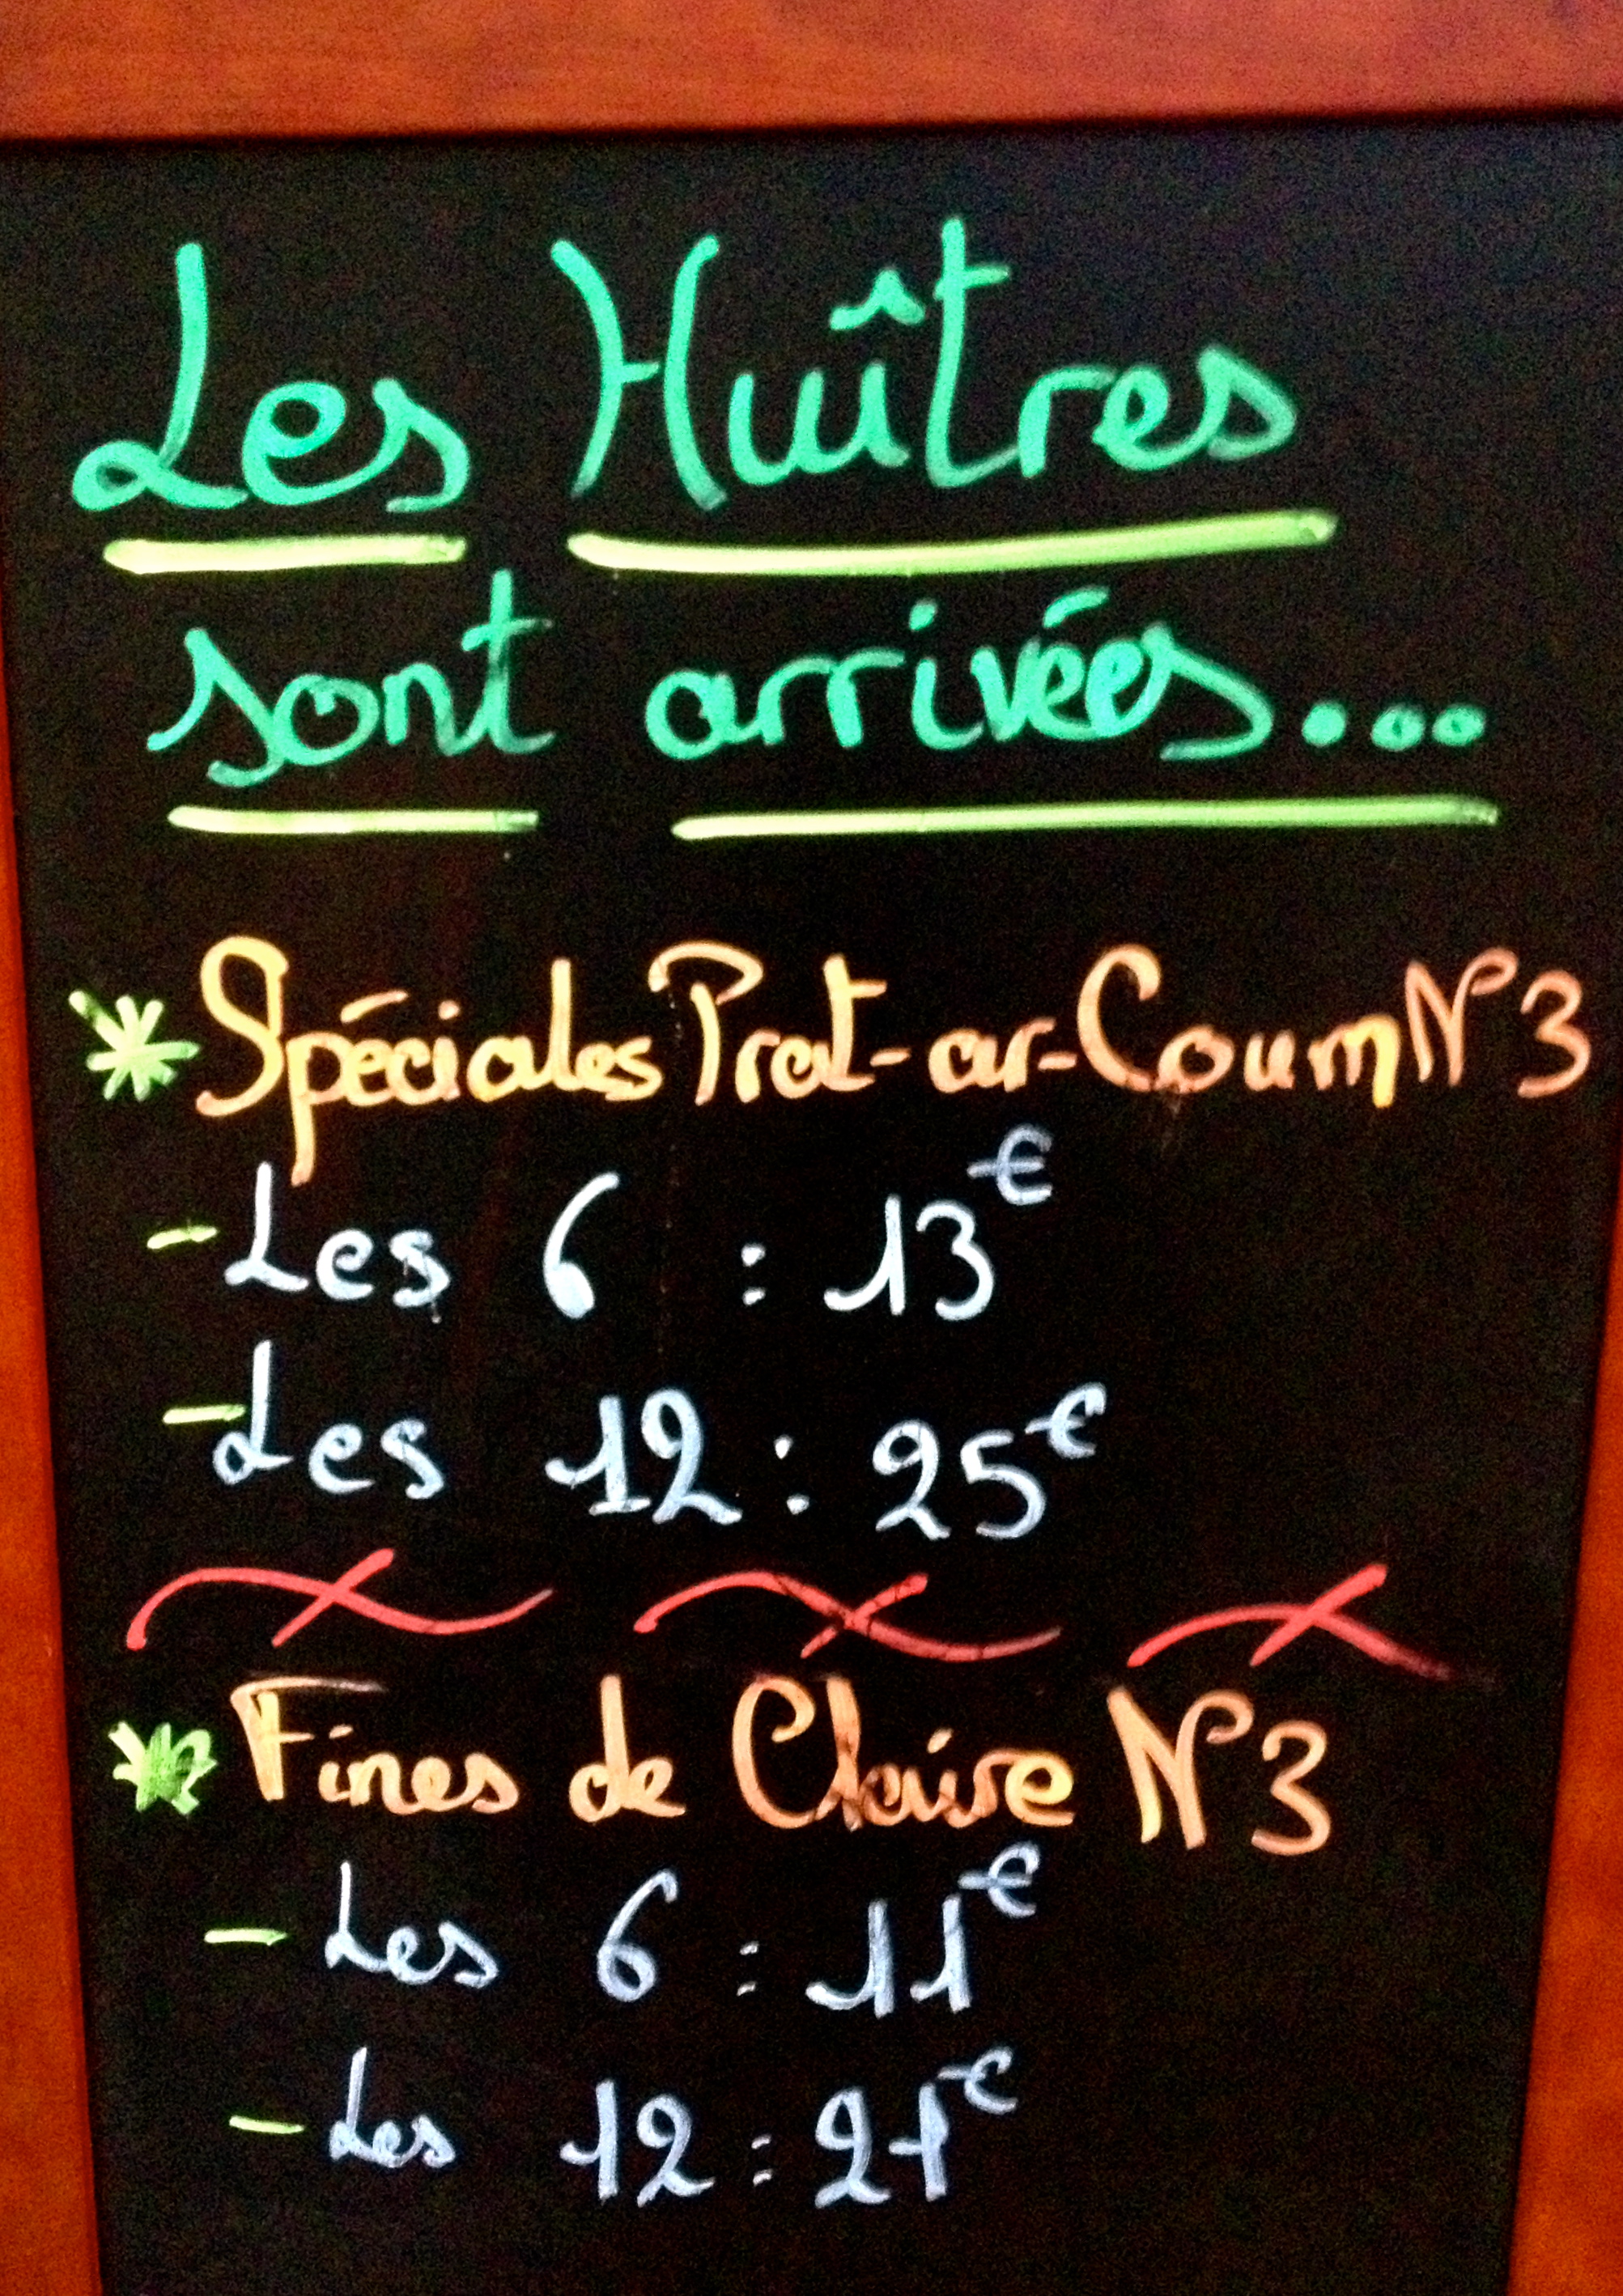 Les Huîtres
sont arrivées...
* Spéciales Prat-ar-Coum N°3
- Les 6 : 13€
- Les 12 : 25€
* Fines de Claire N°3
- Les 6 : 11€
- Les 12 : 21€